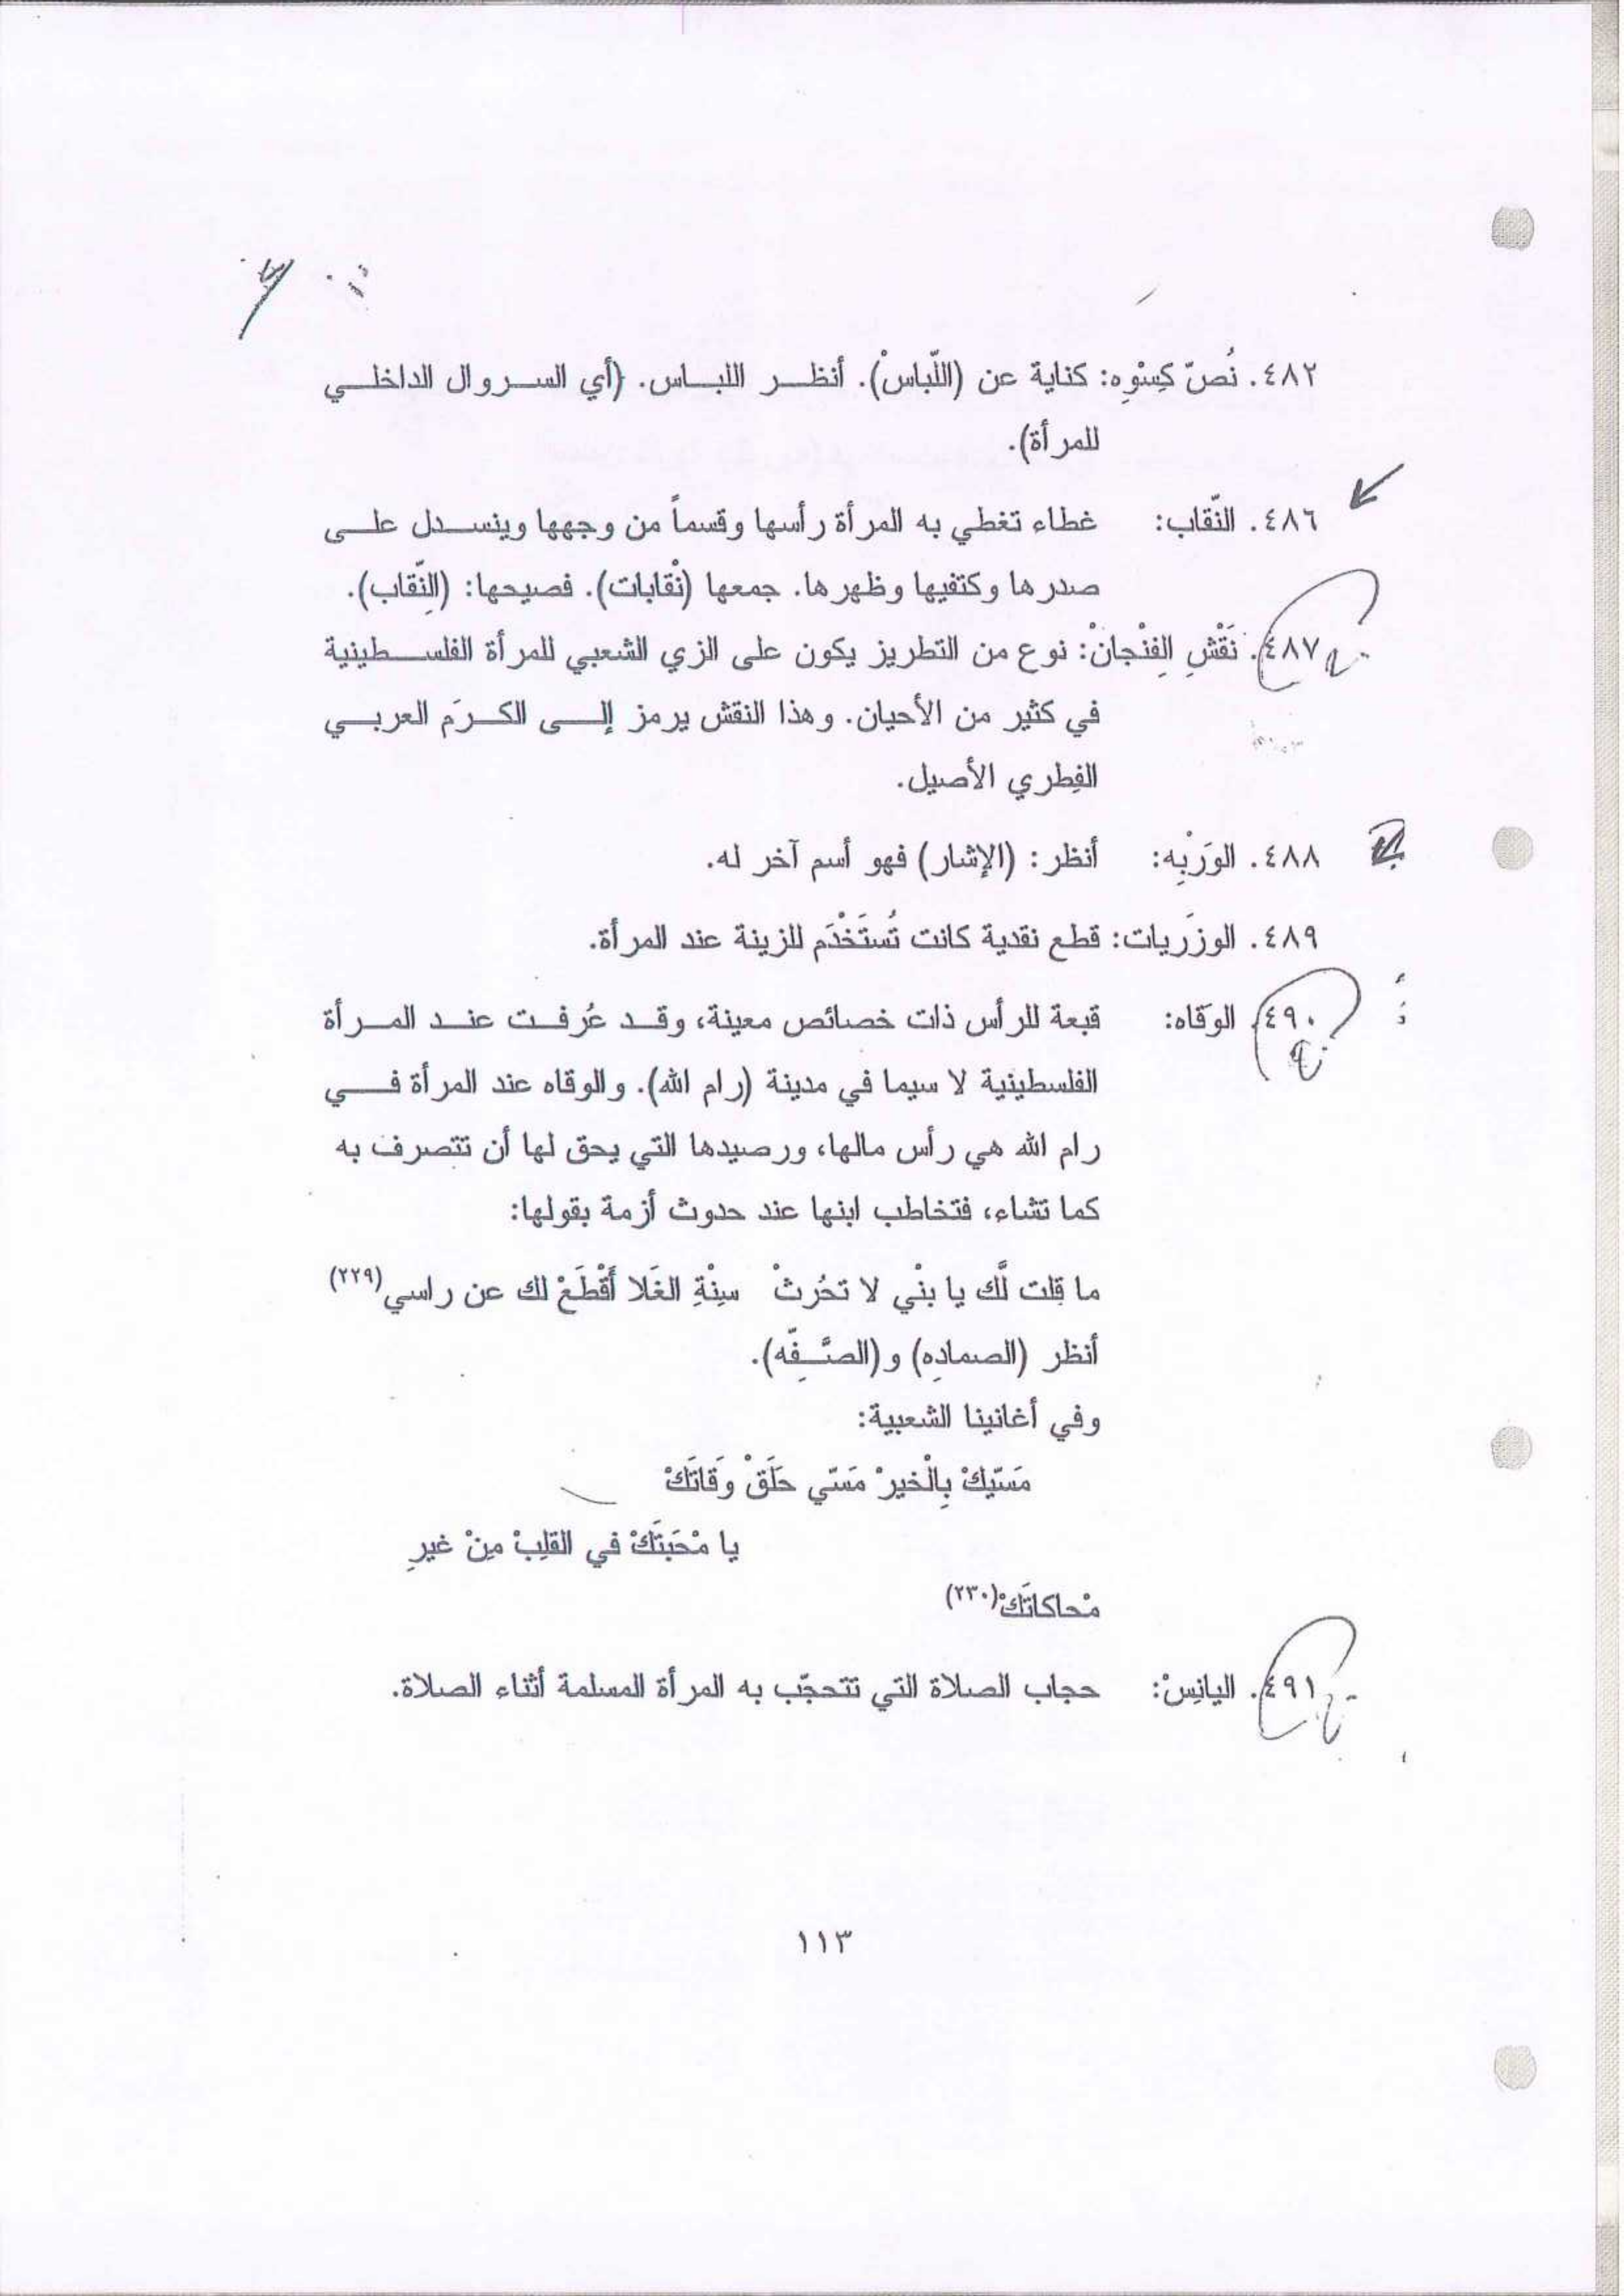 ٤٨٢. نُصّ كِسْوِه: كناية عن (اللّباسْ). أنظر اللباس. (أي السروال الداخلي
للمرأة).
٤٨٦. النّقاب: غطاء تغطي به المرأة رأسها وقسماً من وجهها وينسدل على
صدرها وكتفيها وظهرها. جمعها (نْقابات). فصيحها: (النِّقاب).
٤٨٧. نَقْشِ الفِنْجانْ: نوع من التطريز يكون على الزي الشعبي للمرأة الفلسطينية
في كثير من الأحيان. وهذا النقش يرمز إلى الكرَم العربي
الفِطري الأصيل.
٤٨٨. الوَرَبْه: أنظر: (الإشار) فهو أسم آخر له.
٤٨٩. الوزَريات: قطع نقدية كانت تُستَخْدَم للزينة عند المرأة.
٤٩٠. الوَقاه: قبعة للرأس ذات خصائص معينة، وقد عُرفت عند المرأة
الفلسطينية لا سيما في مدينة (رام الله). والوقاه عند المرأة في
رام الله هي رأس مالها، ورصيدها التي يحق لها أن تتصرف به
كما تشاء، فتخاطب ابنها عند حدوث أزمة بقولها:
ما قِلت لَّك يا بنْي لا تحُرثْ سِنْةِ الغَلا أَقْطَعْ لك عن راسي(٢٢٩)
أنظر (الصمادِه) و(الصَّفِّه).
وفي أغانينا الشعبية:
مَسّيكْ بِالْخيرْ مَسّي حَلَقْ وَقاتَكْ
يا مْحَبتَكْ في القلِبْ مِنْ غيرِ
مْحاكاتَكْ(٢٣٠)
٤٩١. اليانِسْ: حجاب الصلاة التي تتحجّب به المرأة المسلمة أثناء الصلاة.
١١٣